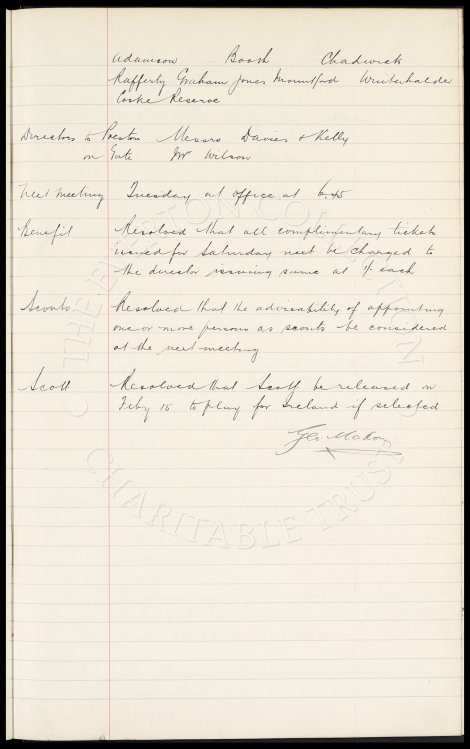 Adamson Booth Chadwick
Rafferty Graham Jones Mountford Winterhalder
Cooke Reserve
Directors to Preston Messrs Davies & Kelly
on Gate Mr Wilson
Next Meeting Tuesday at office at 6.45
Benefit Resolved that all complimentary tickets
issued for Saturday next be charged to
the director issuing same at 1/ each
Scouts Resolved that the advisability of appointing
one or more persons as scouts be considered
at the next meeting
Scott Resolved that Scott be released on
Feby 15 to play for Ireland if selected
Geo. Mahon
THE EVERTON COLLECTION
CHARITABLE TRUST